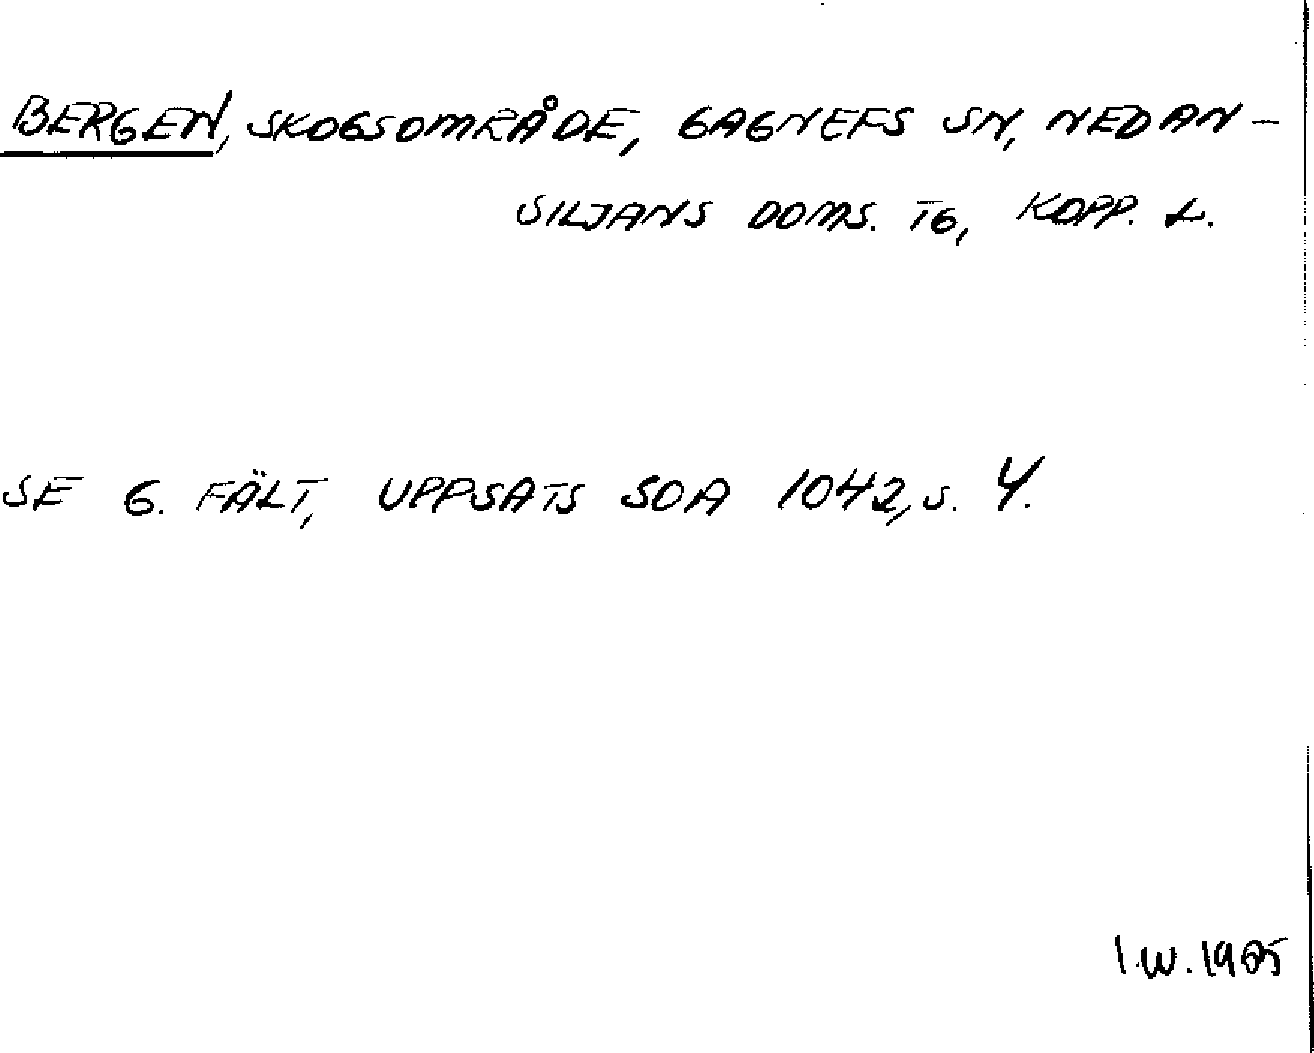 BERGEN, SKOGSOMRÅDE, GAGNEFS SN, NEDAN-
SILJANS DOMS. TG, KOPP. L.
SE G. FÄLT, UPPSATS SOA 1042, S. 4.
I.W. 1965